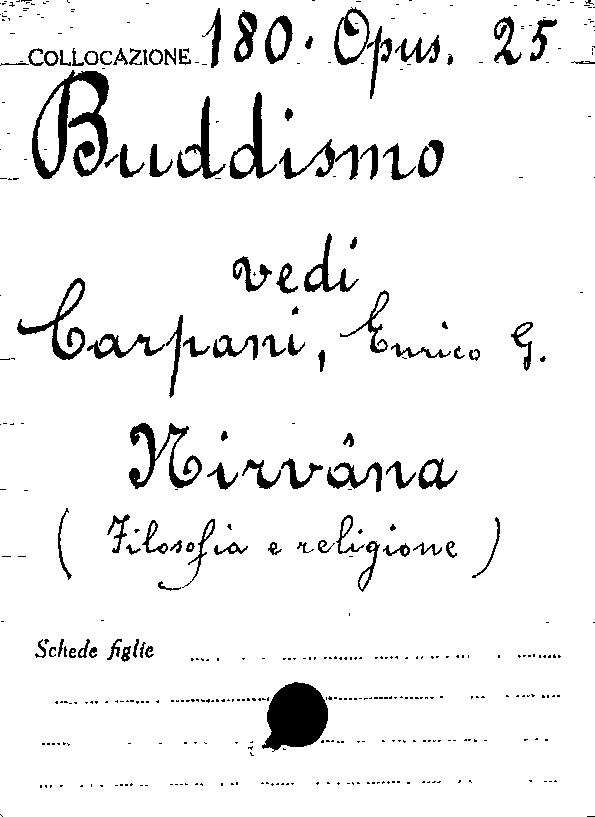 COLLOCAZIONE 180. Opus. 25
Buddismo
vedi
Carpani, Enrico G.
Nirvâna
(Filosofia e religione)
Schede figlie